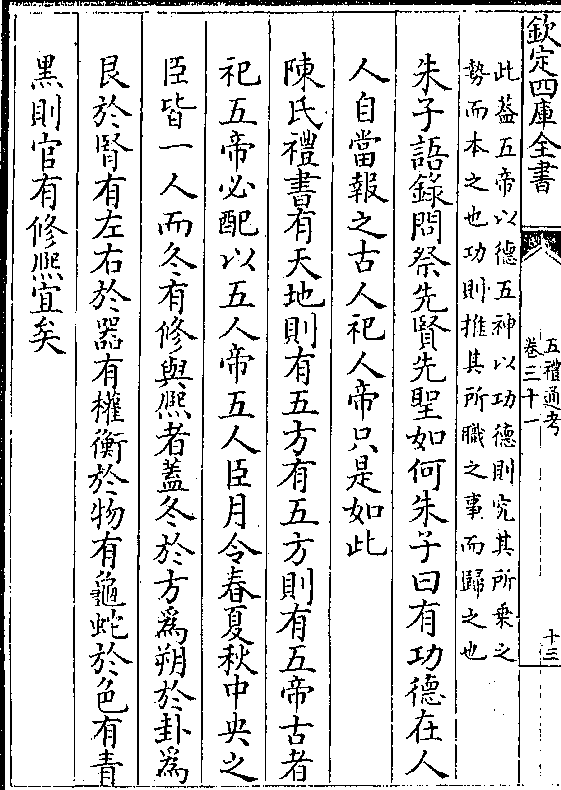 欽定四庫全書
五禮通考
卷三十一
十三
此蓋五帝以德五神以功德則究其所乗之
勢而本之也功則推其所職之事而歸之也
朱子語録問祭先賢先聖如何朱子曰有功德在人
人自當報之古人祀人帝只是如此
陳氏禮書有天地則有五方有五方則有五帝古者
祀五帝必配以五人帝五人臣月令春夏秋中央之
臣皆一人而冬有修與熙者蓋冬於方為朔於卦為
艮於腎有左右於器有權衡於物有龜蛇於色有青
黑則官有修熙宜矣